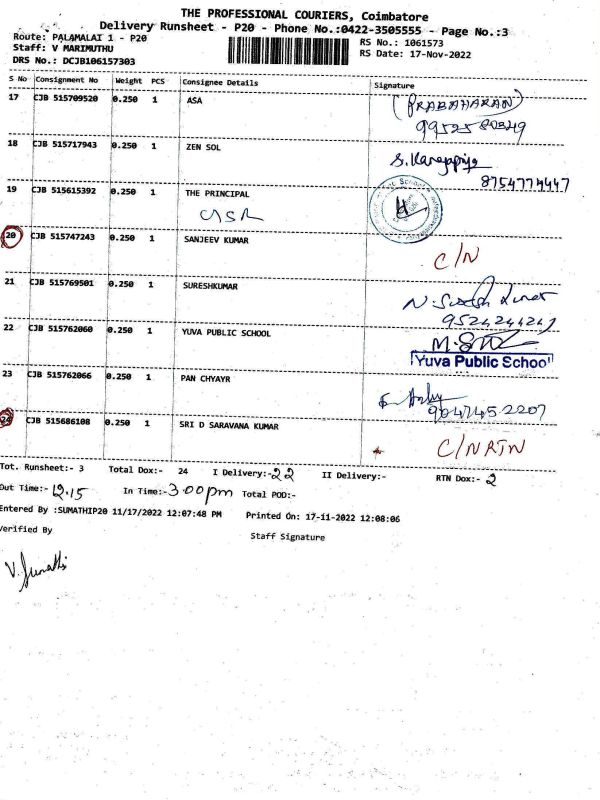 THE PROFESSIONAL COURIERS, Coimbatore
Delivery Runsheet - P20 - Phone No.:0422-3505555 - Page No.:3
Route: PALAMALAI 1 - P20
Staff: V MARIMUTHU
DRS No.: DCJB106157303
RS No.: 1061573
RS Date: 17-Nov-2022
S No Consignment No Weight PCS Consignee Details Signature
17 CJB 515709520 0.250 1 ASA (PRABAHARAN)
18 CJB 515717943 0.250 1 ZEN SOL
8754774447
19 CJB 515615392 0.250 1 THE PRINCIPAL
20 CJB 515747243 0.250 1 SANJEEV KUMAR
C/N
21 CJB 515769501 0.250 1 SURESHKUMAR
22 CJB 515762060 0.250 1 YUVA PUBLIC SCHOOL
"Yuva Public School"
23 CJB 515762066 0.250 1 PAN CHYAYR
24 CJB 515686108 0.250 1 SRI D SARAVANA KUMAR
C/N RTN
Tot. Runsheet:- 3 Total Dox:- 24 I Delivery:- 22 II Delivery:- RTN Dox:- 2
Out Time:- 12.15 In Time:- 3.00pm Total POD:-
Entered By :SUMATHIP20 11/17/2022 12:07:48 PM Printed On: 17-11-2022 12:08:06
Verified By Staff Signature
V. Sumathi